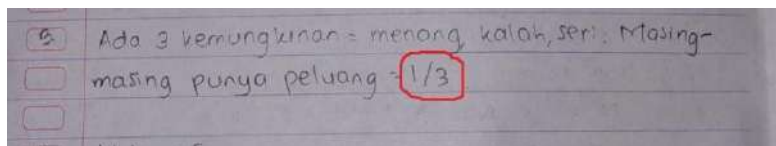 5 Ada 3 kemungkinan = menang, kalah, seri. Masing-
masing punya peluang = 1/3